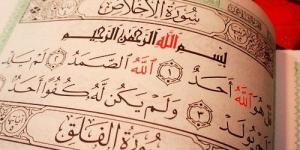 سُورَةُ الْإِخْلَاصِ
بِسْمِ اللَّهِ الرَّحْمَنِ الرَّحِيمِ
قُلْ هُوَ اللَّهُ أَحَدٌ ١ اللَّهُ الصَّمَدُ ٢ لَمْ يَلِدْ
وَلَمْ يُولَدْ ٣ وَلَمْ يَكُن لَّهُ كُفُوًا أَحَدٌ
سُورَةُ الْفَلَقِ